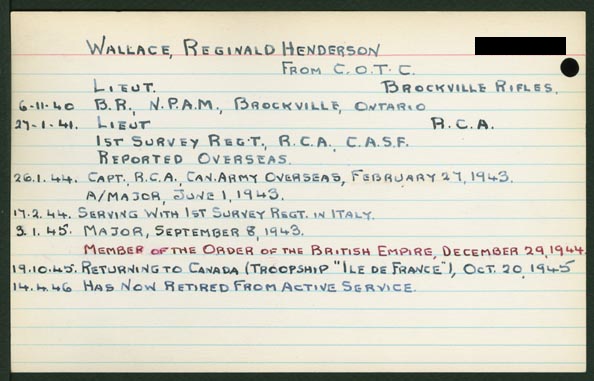 WALLACE, REGINALD HENDERSON
FROM C.O.T.C.
LIEUT. BROCKVILLE RIFLES.
6-11-40 B.R., N.P.A.M., BROCKVILLE, ONTARIO
27-1-41. LIEUT R.C.A.
1ST SURVEY REGT., R.C.A., C.A.S.F.
REPORTED OVERSEAS.
26.1.44. CAPT., R.C.A., CAN. ARMY OVERSEAS, FEBRUARY 27, 1943.
A/MAJOR, JUNE 1, 1943.
17.2.44. SERVING WITH 1ST SURVEY REGT. IN ITALY.
3.1.45. MAJOR, SEPTEMBER 8, 1943.
MEMBER OF THE ORDER OF THE BRITISH EMPIRE, DECEMBER 29, 1944.
19.10.45. RETURNING TO CANADA (TROOPSHIP "ILE DE FRANCE"), OCT. 20, 1945
14.4.46 HAS NOW RETIRED FROM ACTIVE SERVICE.